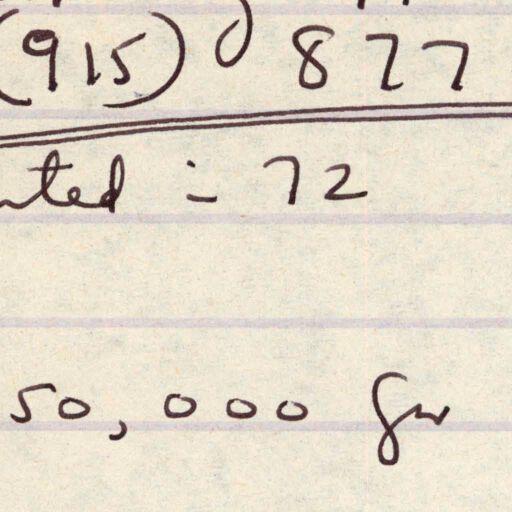 (915) 877
nted = 72
50,000 for